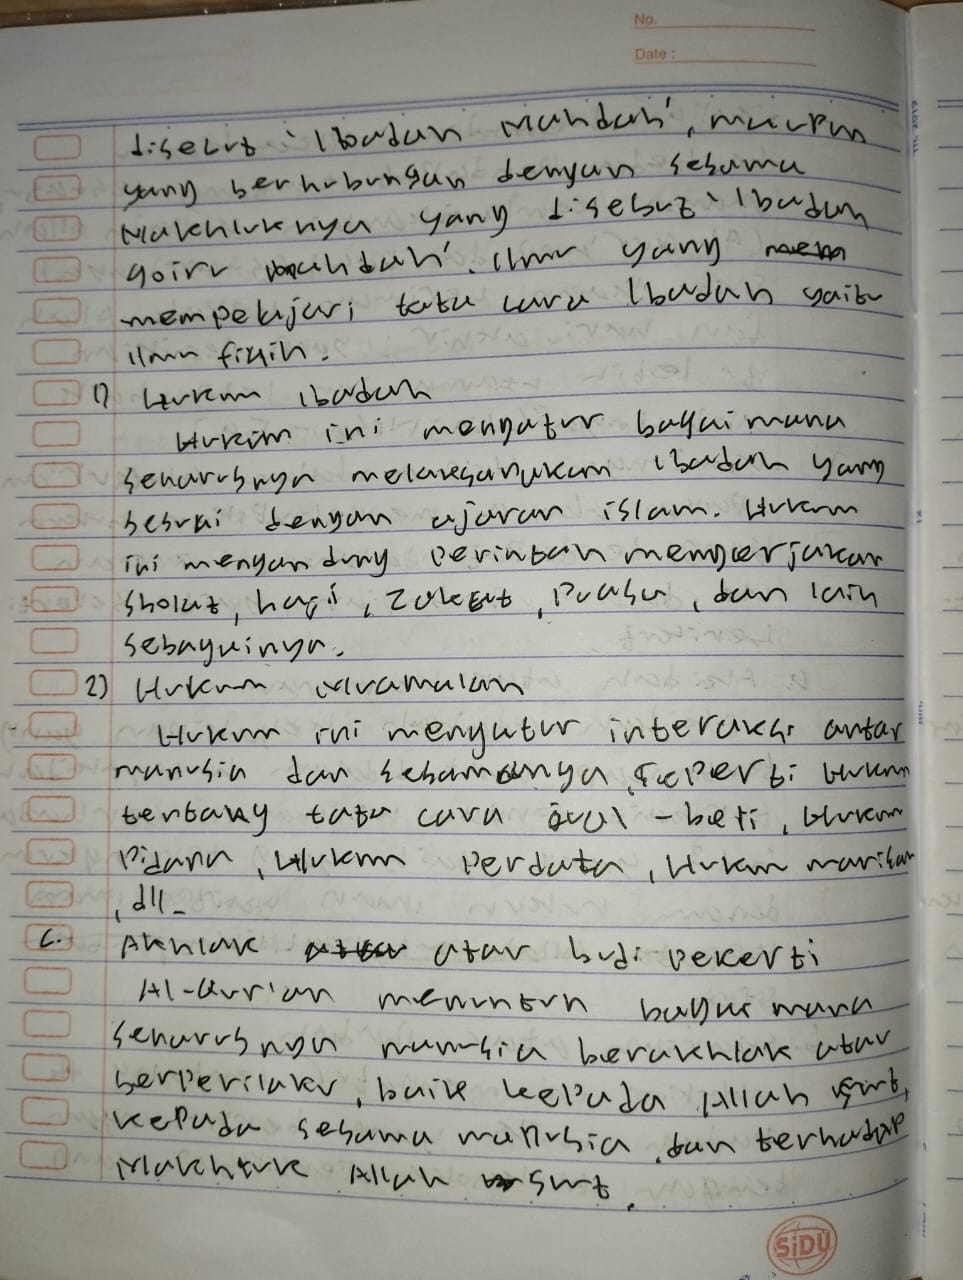 No.
Date :
disebut 'Ibadah Mahdah', maupun
yang berhubungan dengan sesama
Makhluknya yang disebut 'Ibadah
goiru mahdah'. Ilmu yang mem
mempelajari tata cara Ibadah yaitu
ilmu fiqih.
1) Hukum ibadah
Hukum ini mengatur bagaimana
seharusnya melaksanakan ibadah yang
sesuai dengan ajaran islam. Hukum
ini mengandung perintah mengerjakan
sholat, haji, zakat, puasa, dan lain
sebagainya.
2) Hukum Muamalah
Hukum ini mengatur interaksi antar
manusia dan sesamanya, seperti hukum
tentang tata cara jual-beli, Hukum
Pidana, Hukum Perdata, Hukum warisan
, dll-
C. Akhlak atau budi pekerti
Al-Qur'an menuntun bagai mana
seharusnya manusia berakhlak atau
berperilaku, baik kepada Allah swt,
kepada sesama manusia, dan terhadap
Makhluk Allah swt.
SiDU